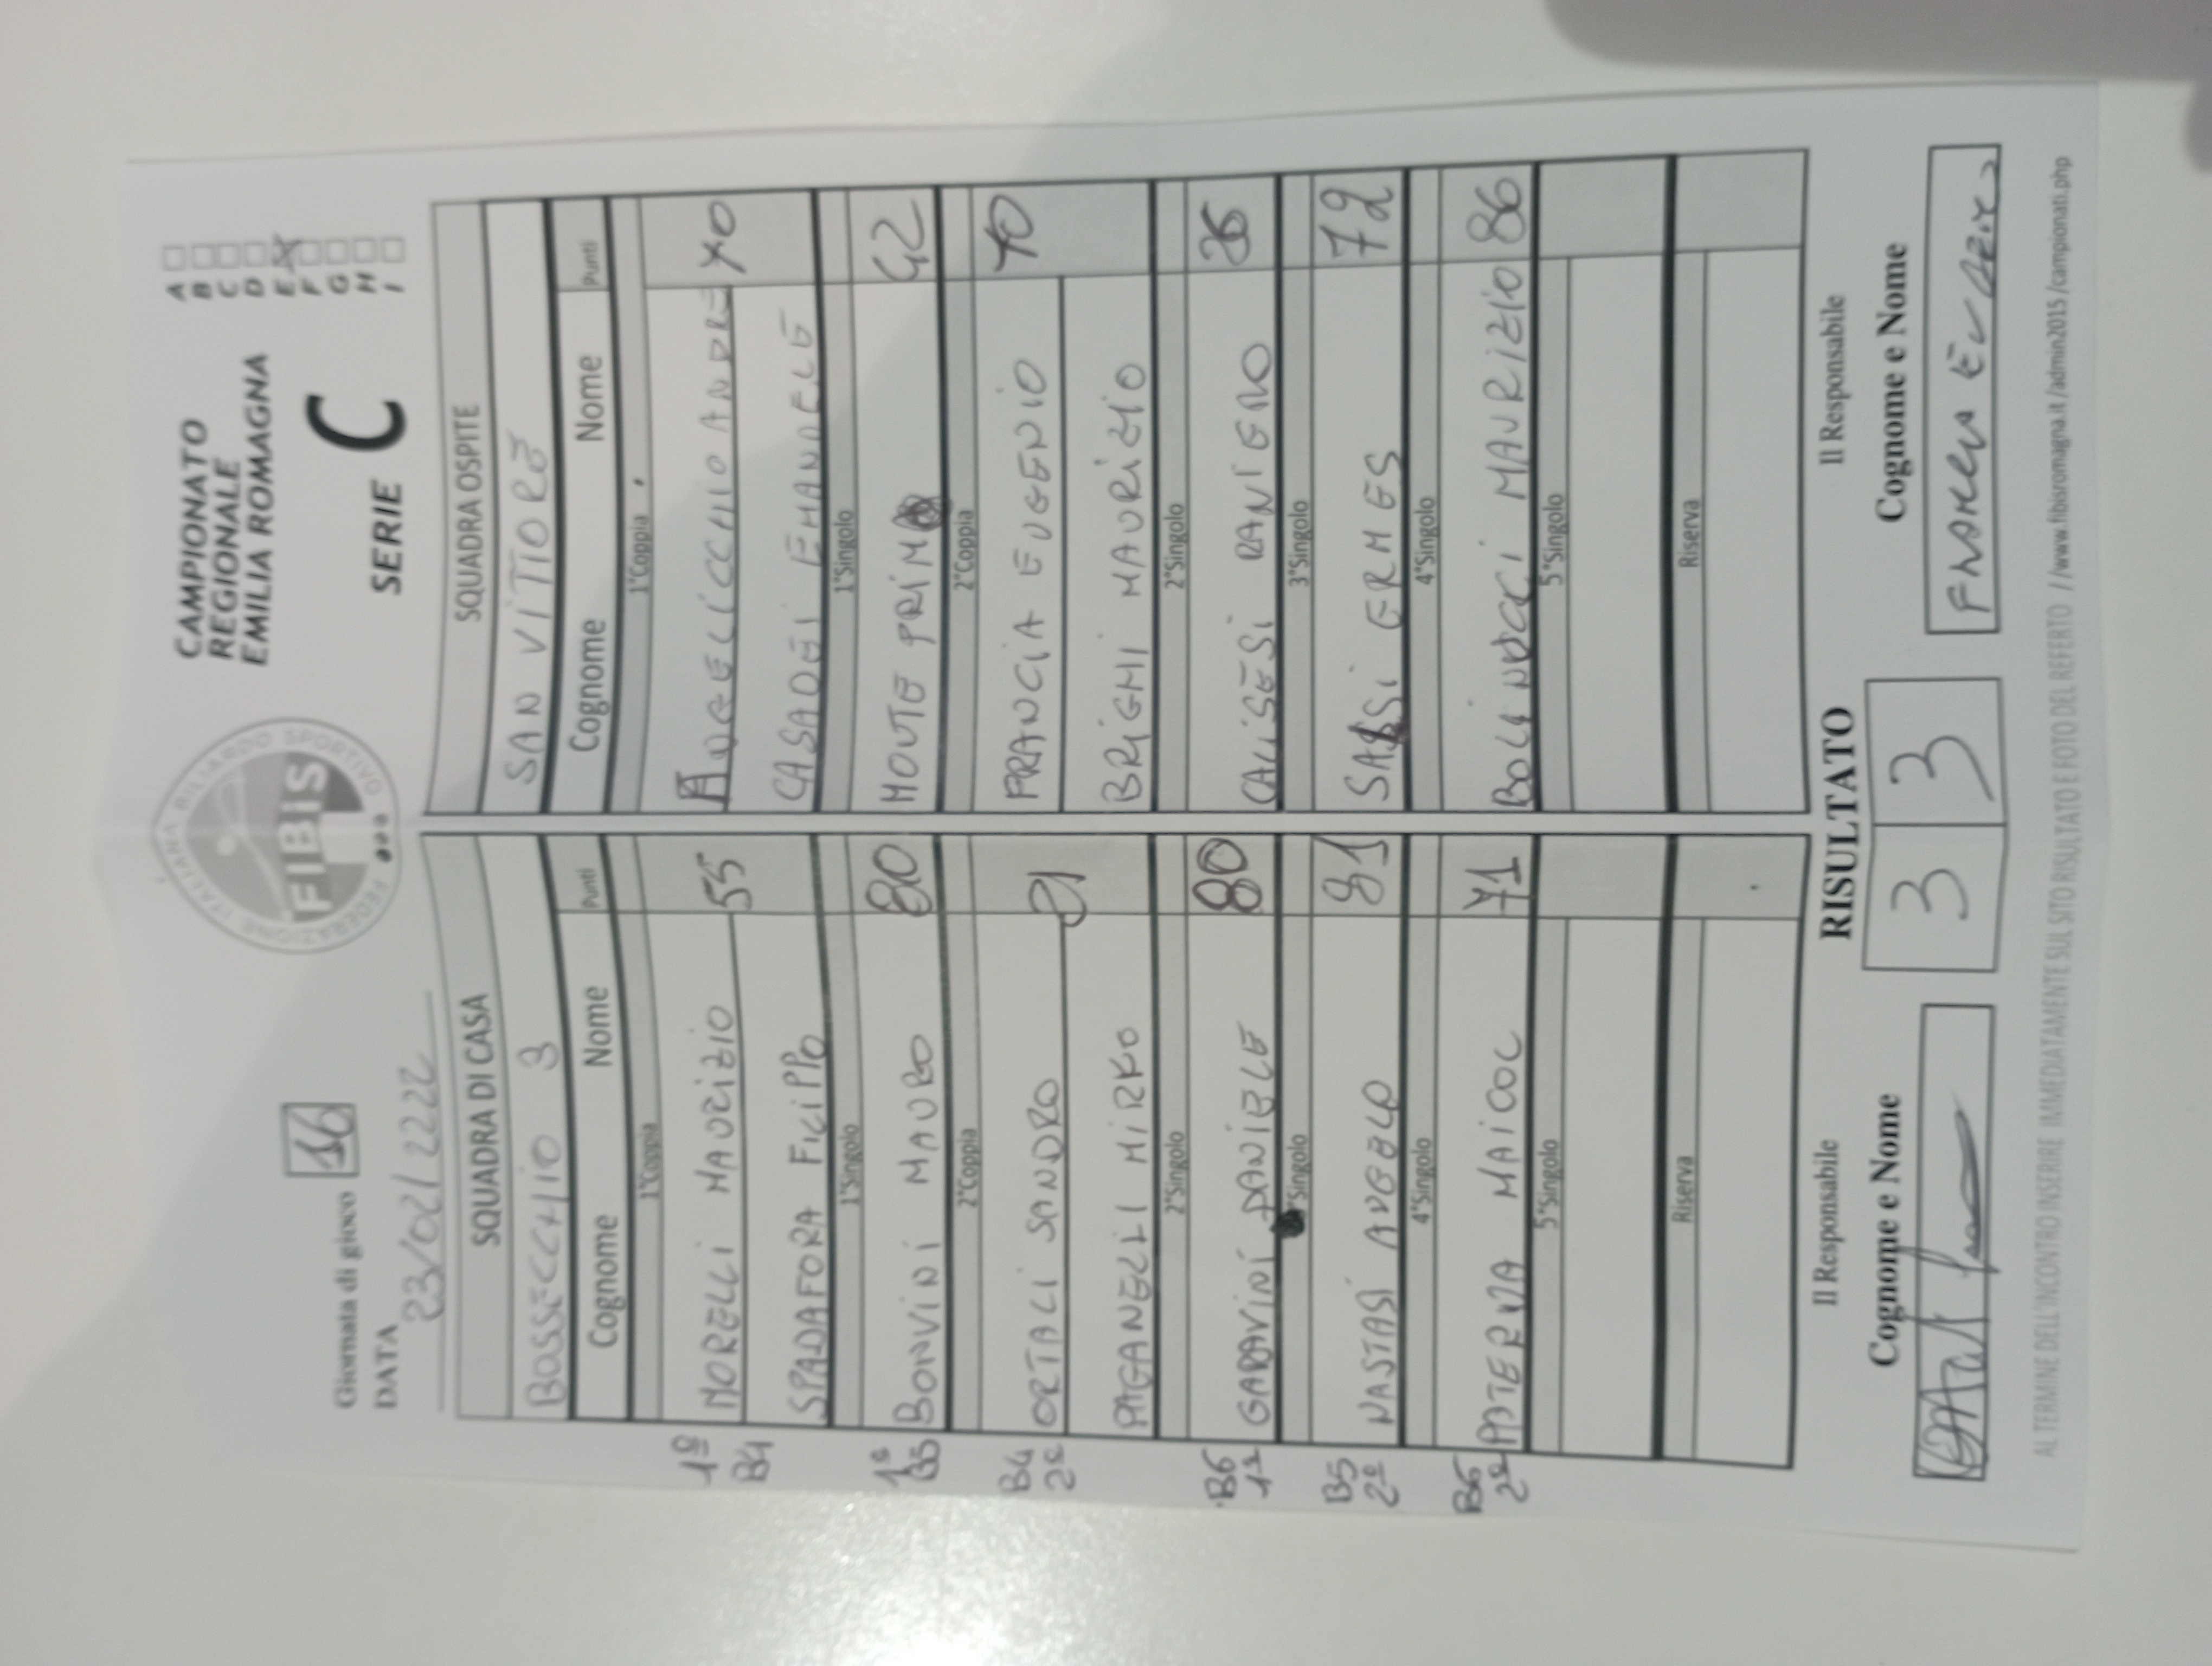 Giornata di gioco 16
DATA
23/02/2222
FEDERAZIONE ITALIANA BILIARDO SPORTIVO
FIBiS
CAMPIONATO
REGIONALE
EMILIA ROMAGNA
SERIE C
A
B
C
D
E X
F
G
H
I
SQUADRA DI CASA
BOSSECCHIO 3
Cognome Nome Punti
1°Coppia
1º B4 MORELLI MAURIZIO 55
SPADAFORA FILIPPO
1°Singolo
1º B5 BONVINI MAURO 80
2°Coppia
B4 2º ORTALI SANDRO
PAGANELLI MIRKO
2°Singolo
B6 1º GARAVINI DANIELE 80
3°Singolo
B5 2º NASTASI ANGELO 81
4°Singolo
B6 2º PATERNA MAICOL 71
5°Singolo
Riserva
SQUADRA OSPITE
SAN VITTORE
Cognome Nome Punti
1°Coppia
ANGELICCHIO ANDRE 70
CASADEI EMANUELE
1°Singolo
MONTE PRIMO 42
2°Coppia
FRANCIA EUGENIO 70
BRIGHI MAURIZIO
2°Singolo
CALISESI RANIERO
3°Singolo
SASSI ERMES 72
4°Singolo
BOLINUCCI MAURIZIO 86
5°Singolo
Riserva
Il Responsabile
Cognome e Nome
RISULTATO
3 3
Il Responsabile
Cognome e Nome
AL TERMINE DELL'INCONTRO INSERIRE IMMEDIATAMENTE SUL SITO RISULTATO E FOTO DEL REFERTO //www.fibisromagna.it/admin2015/campionati.php